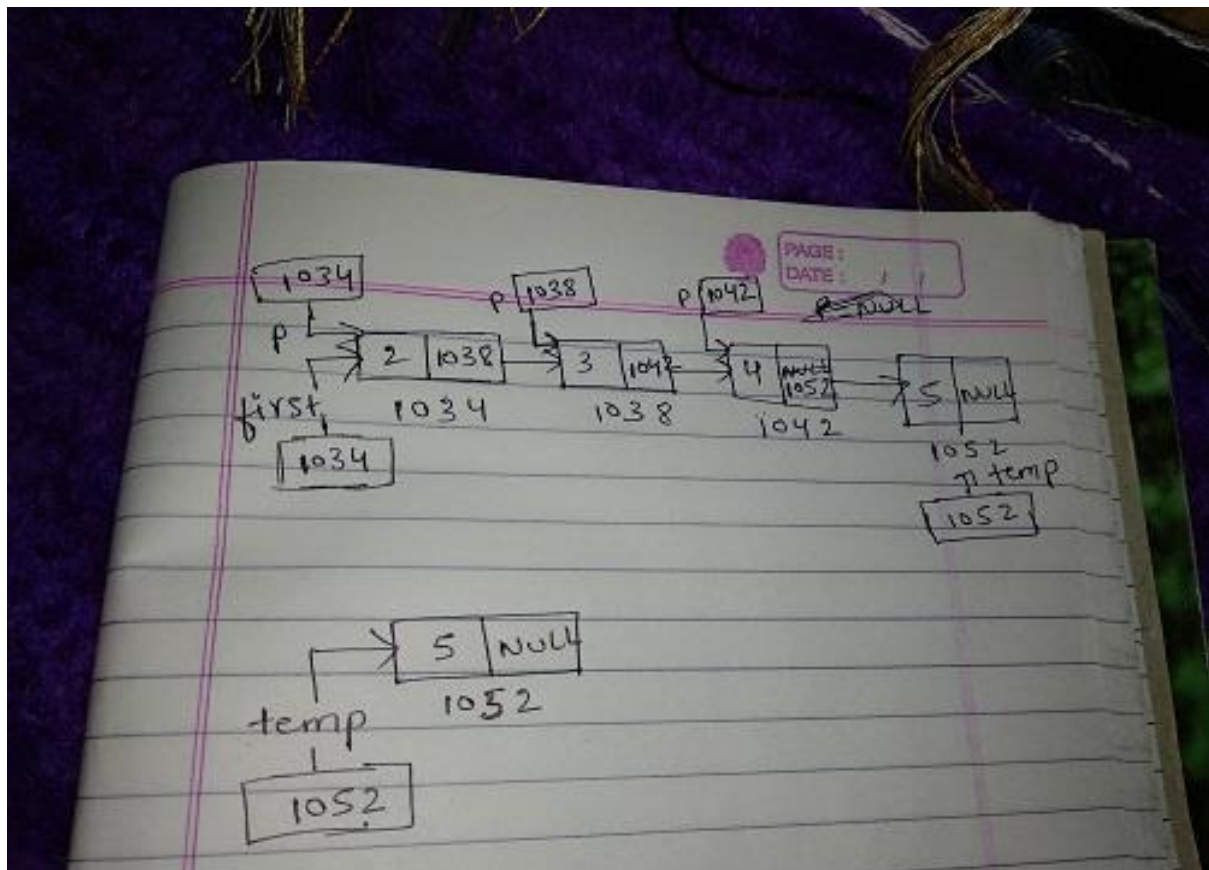 PAGE:
DATE: / /
1034
P 1038
P 1042
P=NULL
P
2 1038
3 1042
4 NULL 1052
5 NULL
first
1034
1038
1042
1052
1034
temp
1052
5 NULL
1052
temp
1052